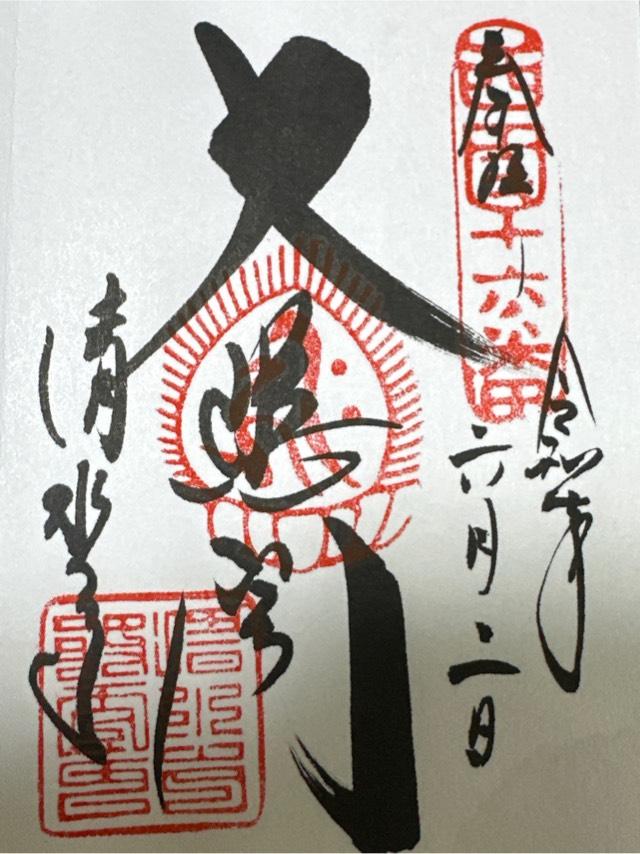 奉拝
西国十六番
令和年
六月二日
大悲閣
清水寺